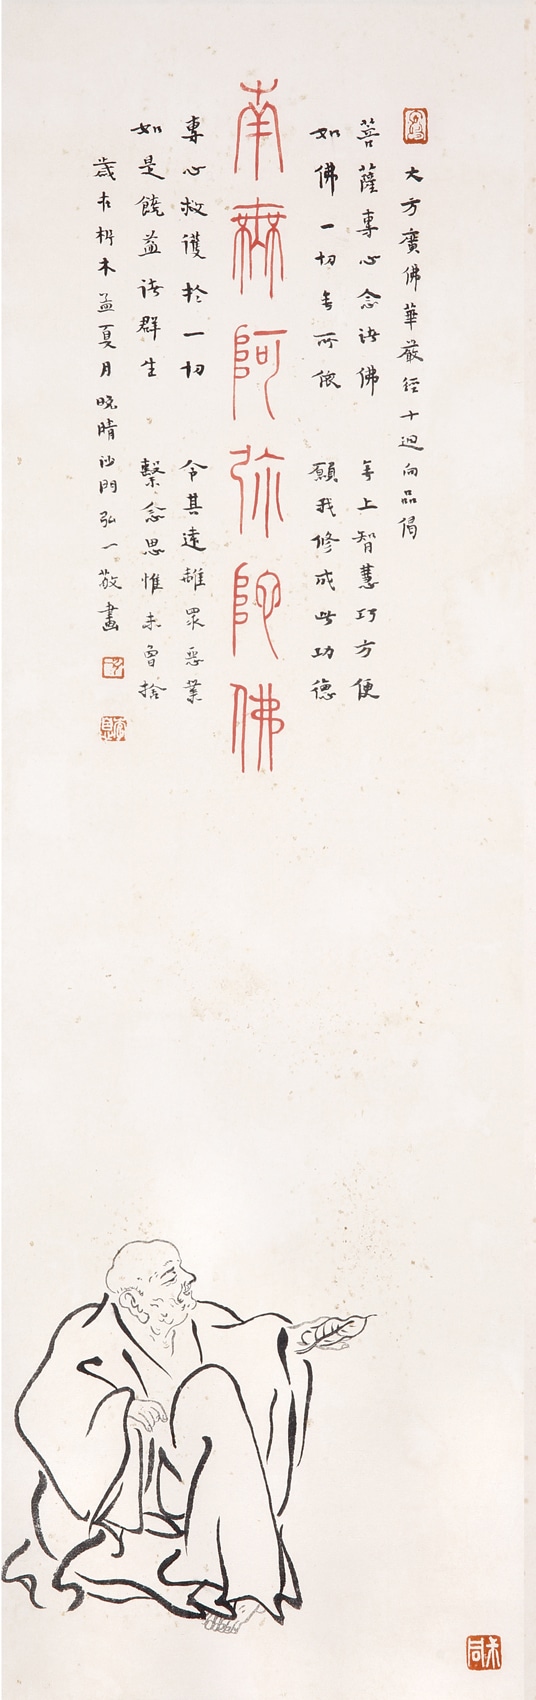 大方廣佛華嚴經十迴向品偈
菩薩專心念諸佛　無上智慧巧方便
如佛一切無所依　願我修成此功德
南無阿弥陀佛
專心救護於一切　令其遠離眾惡業
如是饒益諸群生　繫念思惟未曾捨
歲在析木孟夏月晚晴沙門弘一敬畫